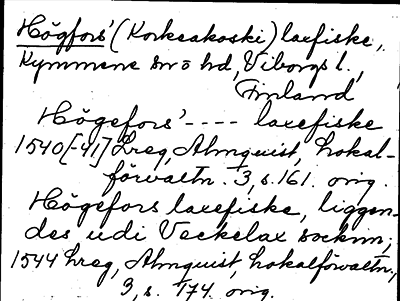 Högfors' (Korkeakoski) laxfiske,
Kymmene sn o hd, Viborgs l.,
Finland
Högefors' ---- laxefiske
1540[-41] Lreg, Almquist, Lokal-
förvaltn. 3, s. 161. orig.
Högefors laxefiske, liggen-
des udi Veckelax socknn,
1544 Lreg, Almquist, Lokalförvaltn.,
3, s. 174. orig.